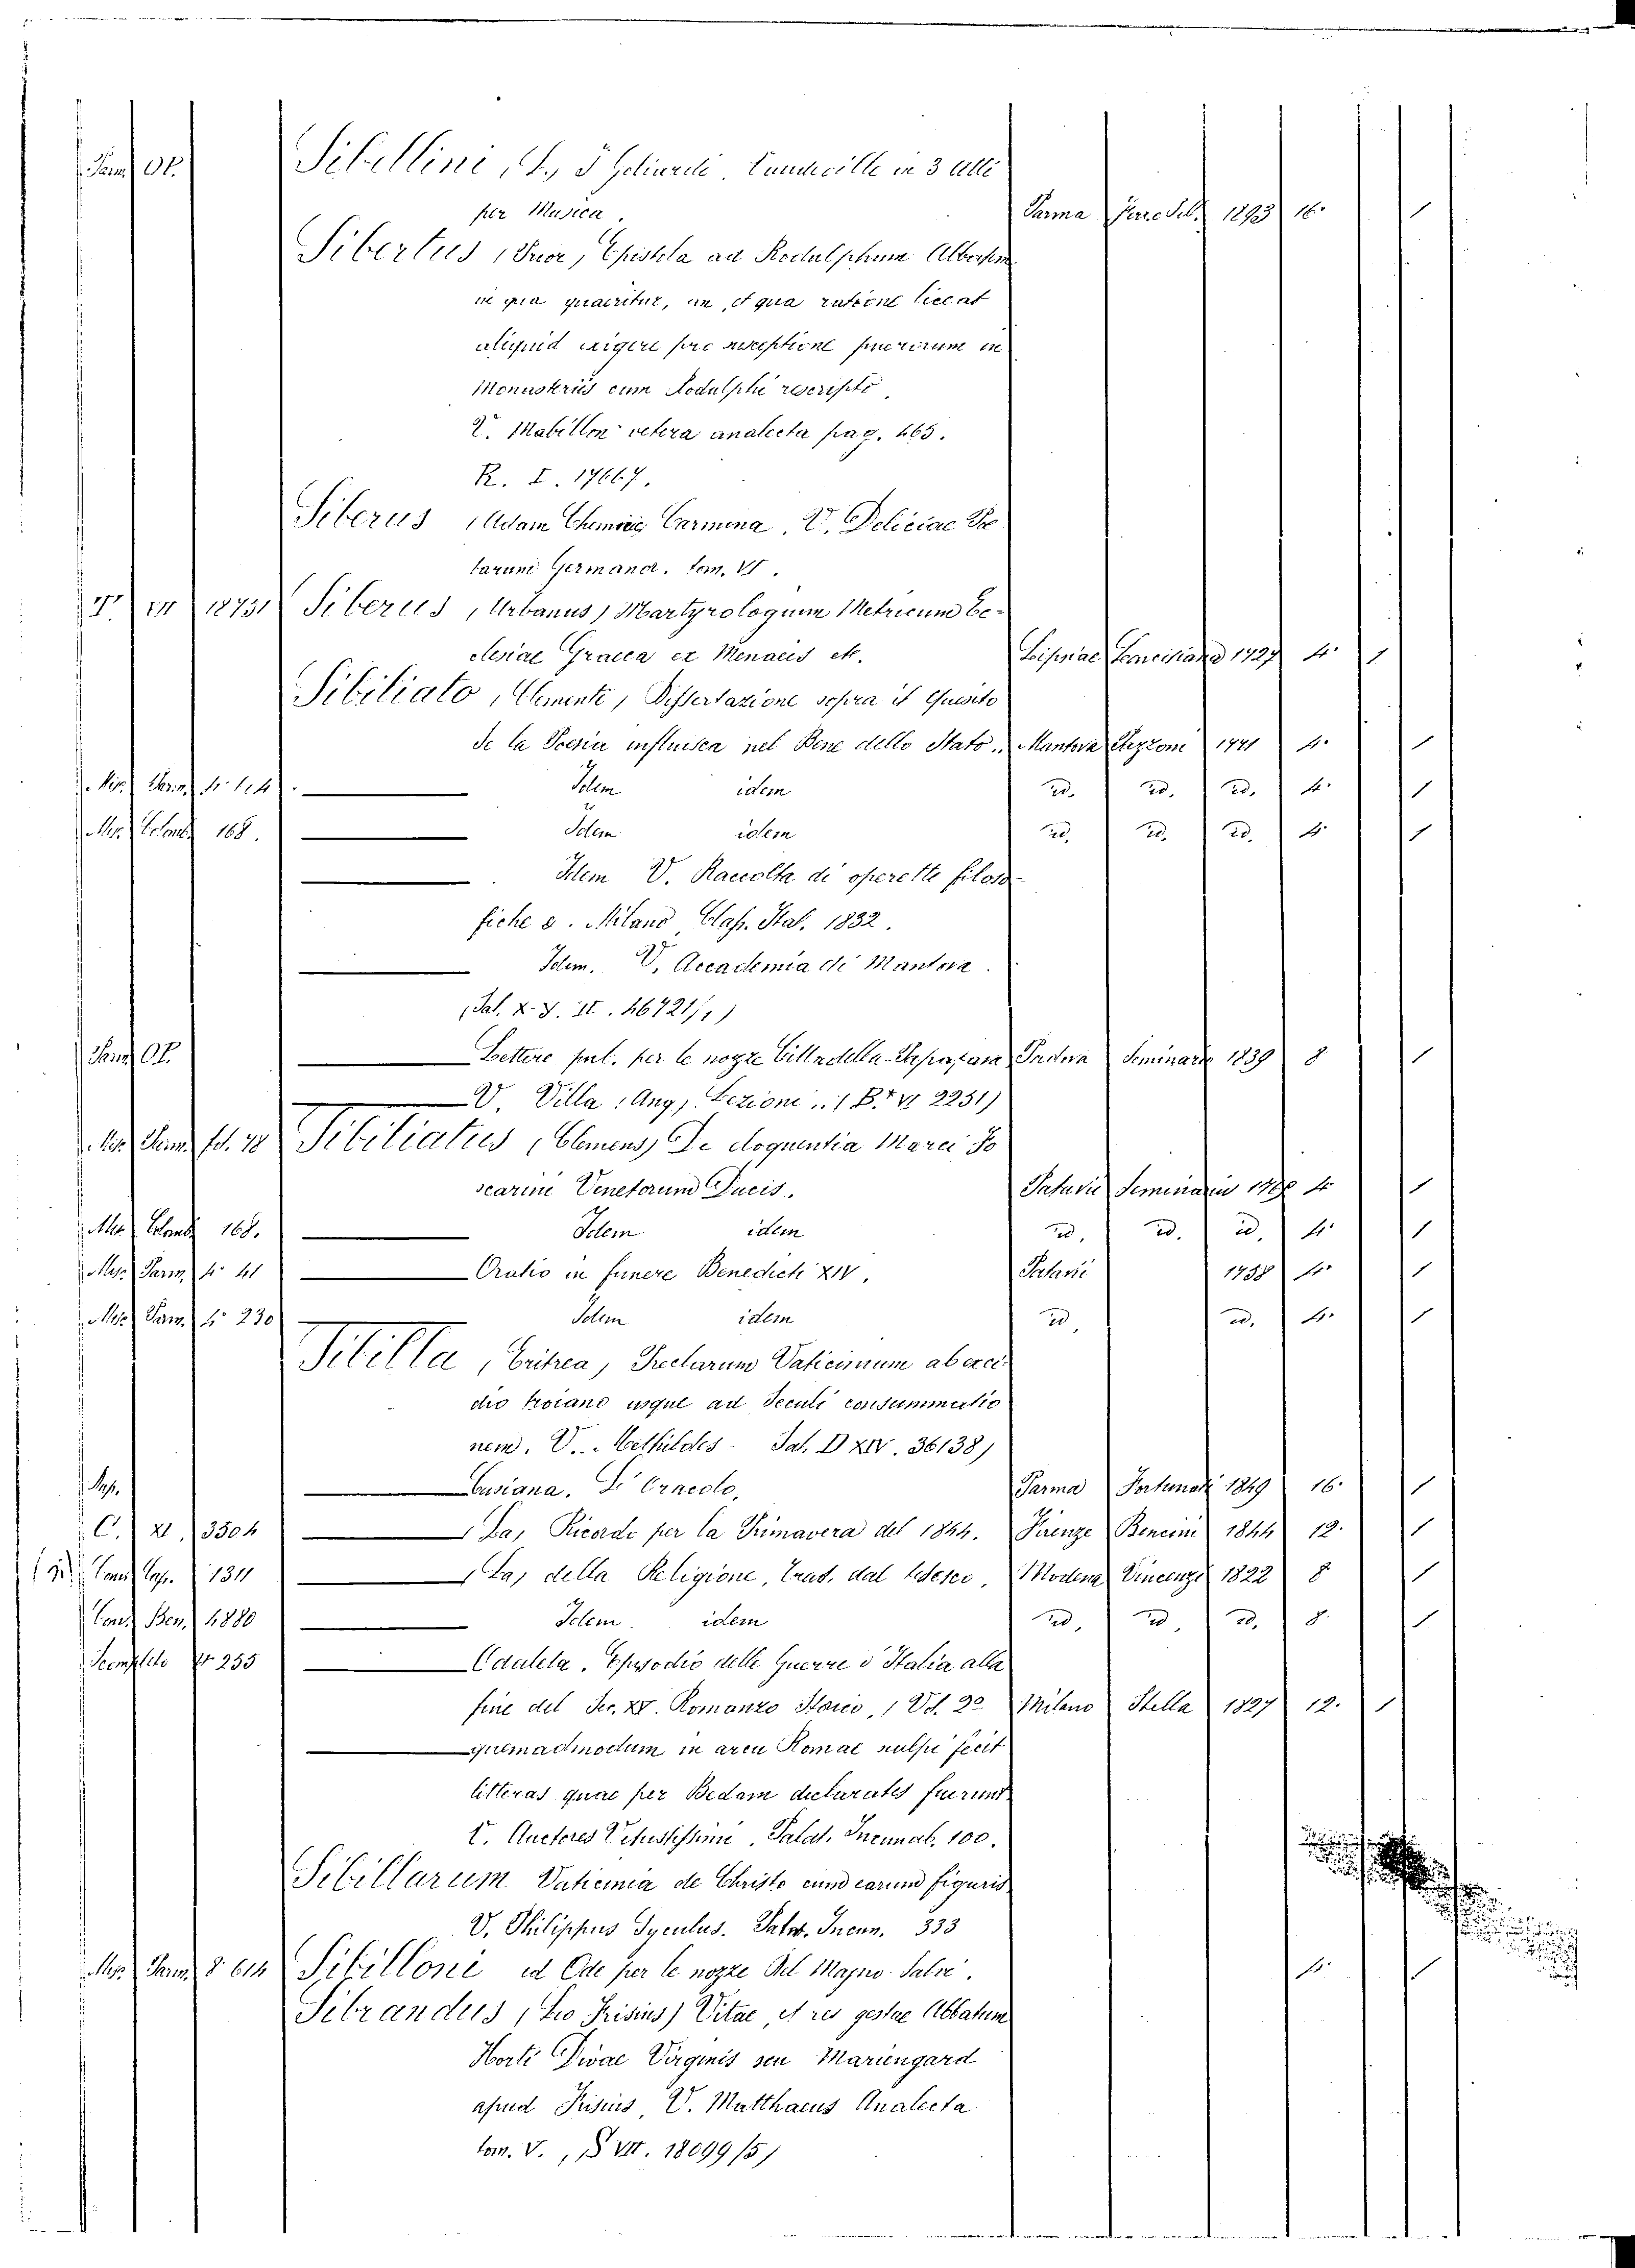 Parm. Op. Sibellini, L., I Goliardi. Vaudeville in 3 Atti
per Musica, Parma 1893 16° 1
Sibertus, Prior, Epistola ad Rodulphum Abbatem
in qua quaeritur, an, et qua ratione liceat
aliquid exigere pro receptione puerorum in
Monasteriis cum Rodulphi rescripto,
V. Mabillon vetera analecta pag. 465.
R. I. 17667.
Siberus, Adam Carmina, V. Deliciae Poe
tarum Germanor. tom. VI.
T. VII 12751 Siberus, Urbanus, Martyrologium Metricum Ec-
clesiae Graeca ex Menaeis etc. Lipsiae 1727 4° 1
Sibiliato, Clemente, Dissertazione sopra il Quesito
Se la Poesia influisca nel Bene dello Stato. Mantova 1771 4° 1
Misc. Parm. 4° Idem idem id. id. id. 4° 1
Misc. Colomb. 168. Idem idem id. id. id. 4° 1
Idem V. Raccolta di operette filoso-
fiche &. Milano, Class. Ital. 1832.
Idem. V. Accademia di Mantova.
(Pal. X. II. 46721/1)
Parm. Op. Lettere pub. per le nozze Cittadella- Padova Seminario 1839 8 1
V. Villa, Ang, Lezioni .. (B. VI 2251)
Misc. Parm. fol. 18 Sibiliatus, Clemens, De eloquentia Marci Fo
scarini Venetorum Ducis, Patavii Seminarii 4° 1
Misc. Colomb. 168. Idem idem id. id. id. 4° 1
Misc. Parm. 4° 41 Oratio in funere Benedicti XIV, Patavii 1758 4° 1
Misc. Parm. 4° 230 Idem idem id. id. 4° 1
Sibilla, Eritrea, Vaticinium ab exci
dio troiano usque ad Seculi consummatio
nem. V. Methildes. Pal. D XIV. 36138)
Cusiana. L' Oracolo, Parma 1849 16° 1
C. XI. 3304 La, Ricordo per la Primavera del 1844. Firenze Bencini 1844 12° 1
Cons. Cap. 1311 La, della Religione, trad. dal tedesco, Modena Vincenzi 1822 8° 1
Cons. Ben. 4880 Idem idem id. id. id. 8° 1
255 Odaleta. Episodio delle Guerre d'Italia alla
fine del Sec. XV. Romanzo Storico, 1 Vol. 2° Milano Stella 1827 12° 1
quemadmodum in arcu Romae sculpi fecit
litteras quae per Bedam declaratae fuerunt
V. Auctores Vetustissimi. Palat. Incunab. 100.
Sibillarum Vaticinia de Christo cum earum figuris
V. Philippus Syculus. Incun. 333
Misc. Parm. 8° 614 Sibilloni ed Ode per le nozze Del Majno- 4° 1
Sibrandus, Leo Frisius) Vitae, et res gestae Abbatum
Horti Divae Virginis seu Mariengard
apud Frisius, V. Matthaeus Analecta
tom. V., S VII. 18099/5)